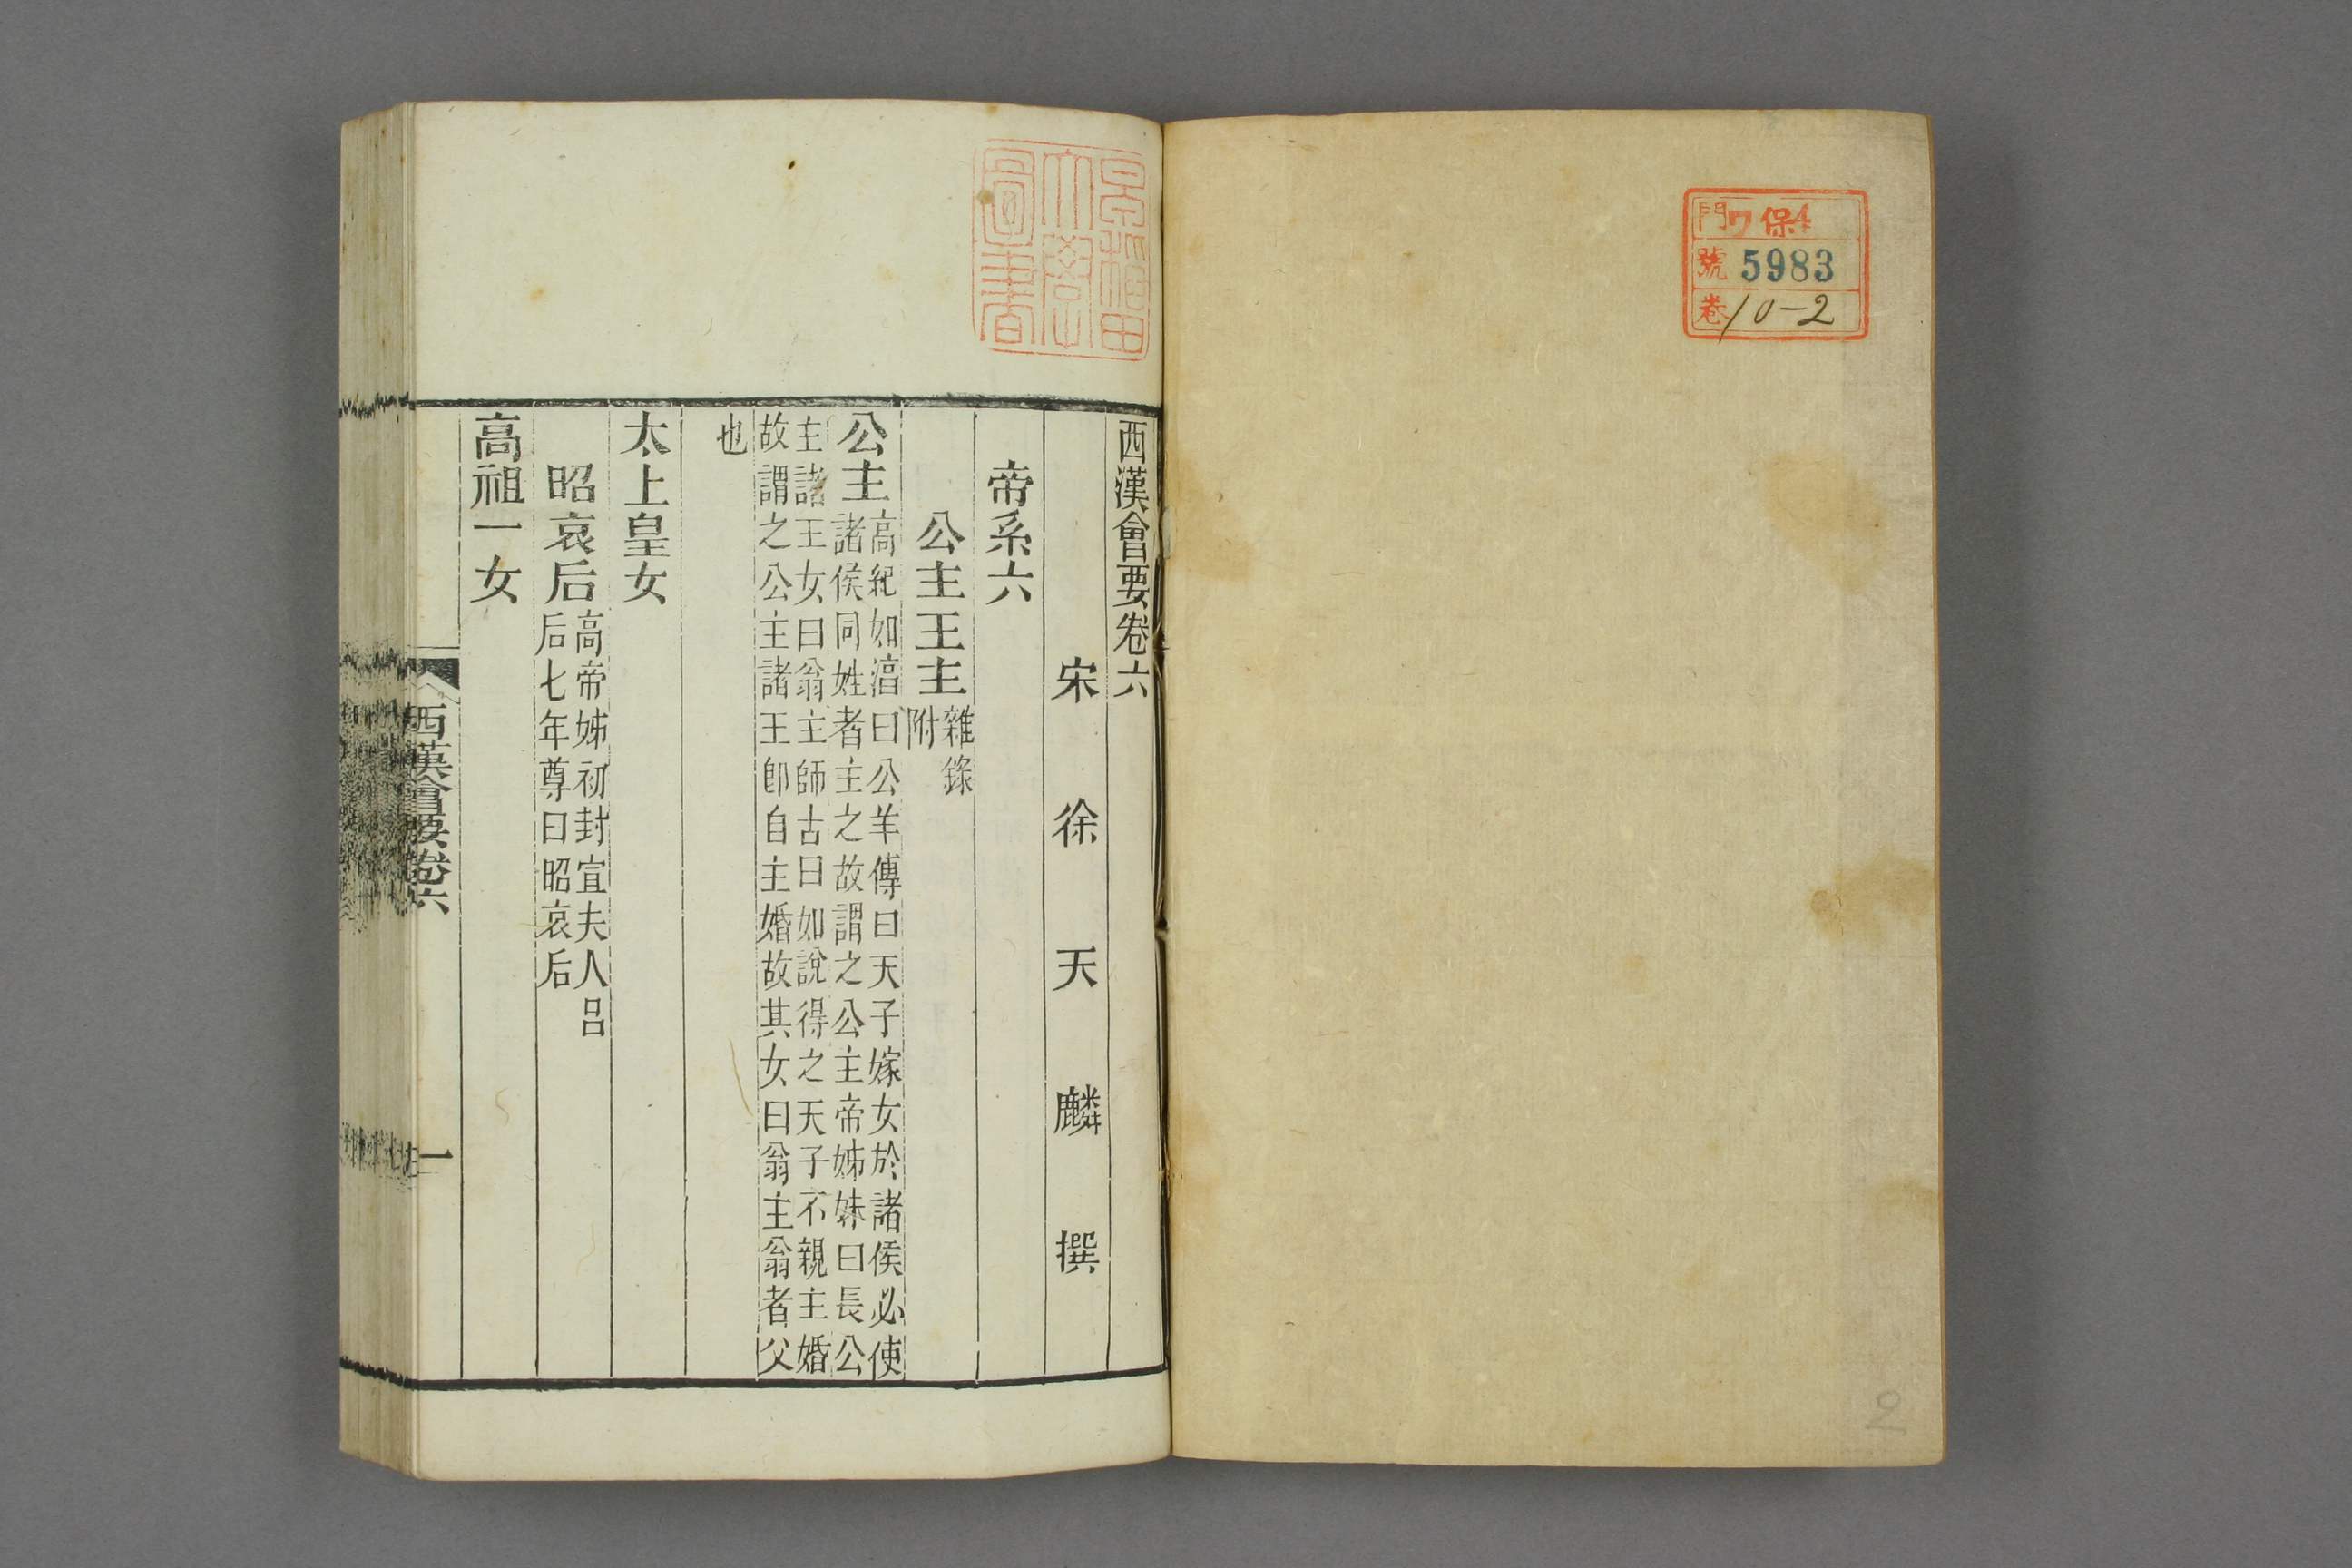 門ワ保4
號5983
卷10-2
2
早稻田大學圖書
西漢會要卷六
宋徐天麟撰
帝系六
公主王主雜錄附
公主高紀如淳曰公羊傳曰天子嫁女於諸侯必使
諸侯同姓者主之故謂之公主帝姊妹曰長公
主諸王女曰翁主師古曰如說得之天子不親主婚
故謂之公主諸王卽自主婚故其女曰翁主翁者父
也
太上皇女
昭哀后高帝姊初封宜夫人呂
后七年尊曰昭哀后
高祖一女
西漢會要卷六
一